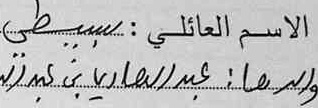 الاسم العائلي : سبيطي
والدها : عبد الصاريا بن عبد الله